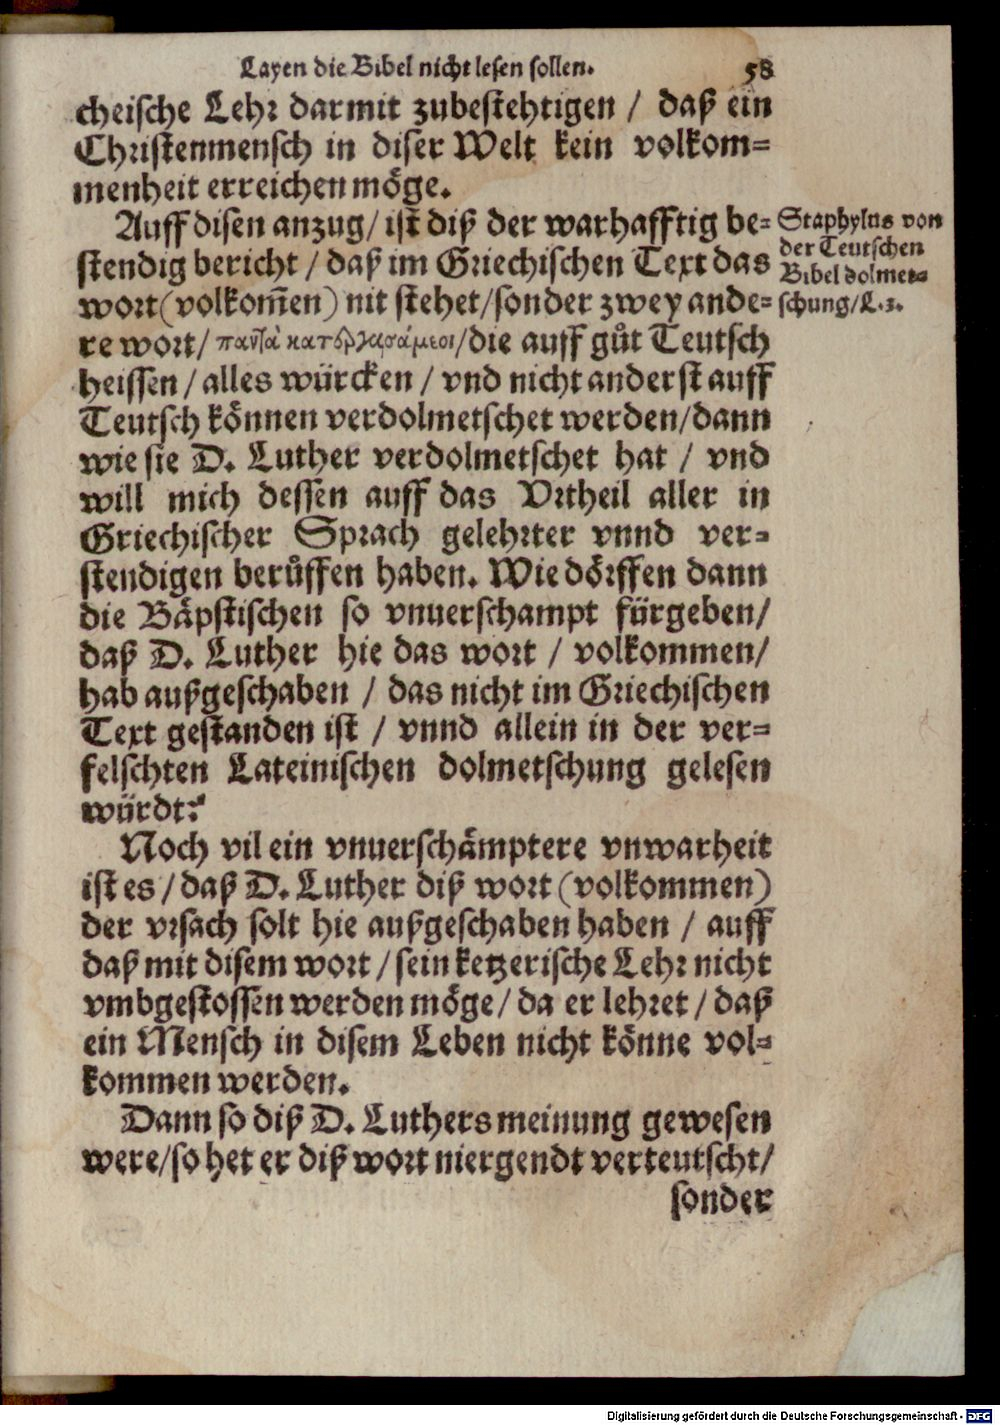 Layen die Bibel nicht lesen sollen. 58
cheische Lehr darmit zubestehtigen / daß ein
Christenmensch in diser Welt kein volkom=
menheit erreichen möge.
Auff disen anzug/ ist diß der warhafftig be=
stendig bericht / daß im Griechischen Text das
wort (volkom̃en) nit stehet/sonder zwey ande=
re wort/ /die auff gůt Teutsch
heissen / alles würcken / vnd nicht anderst auff
Teutsch können verdolmetschet werden/dann
wie sie D. Luther verdolmetschet hat / vnd
will mich dessen auff das Vrtheil aller in
Griechischer Sprach gelehrter vnnd ver=
stendigen berůffen haben. Wie dörffen dann
die Bäpstischen so vnuerschampt fürgeben/
daß D. Luther hie das wort / volkommen/
hab außgeschaben / das nicht im Griechischen
Text gestanden ist / vnnd allein in der ver=
felschten Lateinischen dolmetschung gelesen
würdt?
Noch vil ein vnuerschämptere vnwarheit
ist es / daß D. Luther diß wort (volkommen)
der vrsach solt hie außgeschaben haben / auff
daß mit disem wort / sein ketzerische Lehr nicht
vmbgestossen werden möge/ da er lehret / daß
ein Mensch in disem Leben nicht könne vol=
kommen werden.
Dann so diß D. Luthers meinung gewesen
were/so het er diß wort niergendt verteutscht/
sonder
Staphylus von
der Teutschen
Bibel dolmet=
schung/L.3.
Digitalisierung gefördert durch die Deutsche Forschungsgemeinschaft - DFG